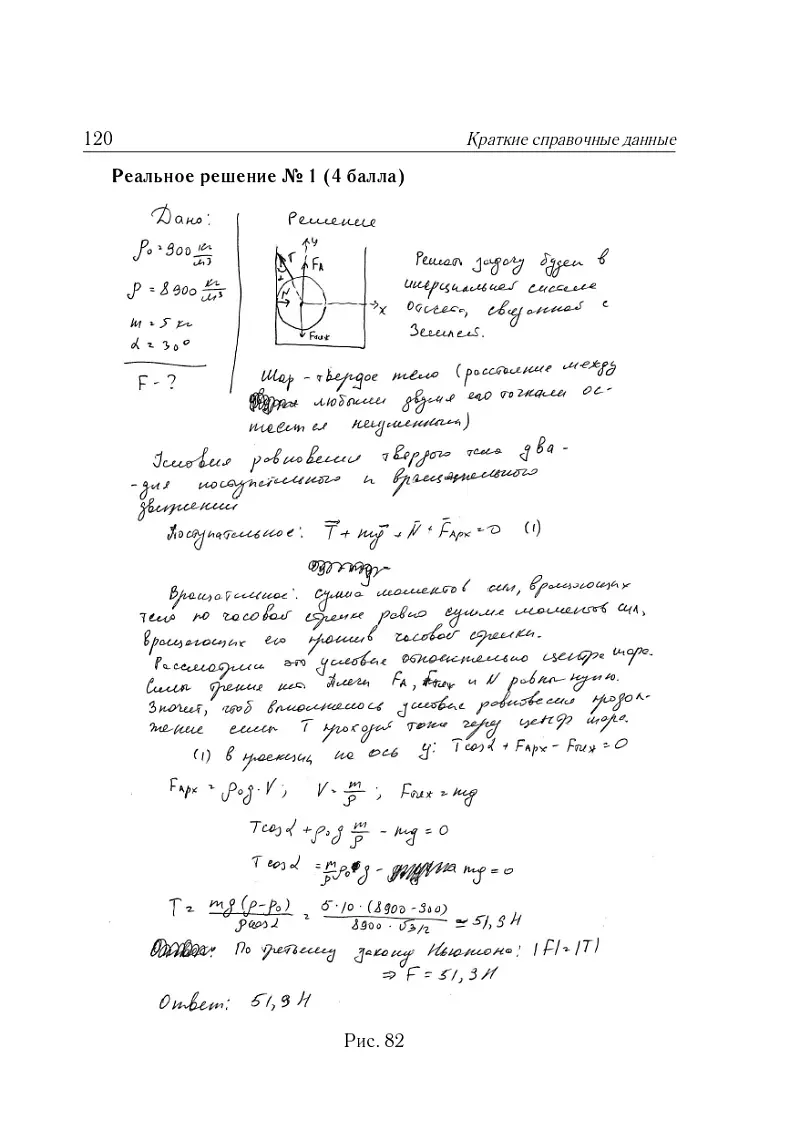 120 Краткие справочные данные
Реальное решение № 1 (4 балла)
Дано:
ρ₀ = 900 кг/м³
ρ = 8900 кг/м³
m = 5 кг
α = 30°
F - ?
Решение
y
T
FA
α
N
x
Fтяж
Решать задачу будем в
инерциальной системе
отсчета, связанной с
Землей.
Шар – твердое тело (расстояние между
любыми двумя его точками ос-
тается неизменным)
Условия равновесия твердого тела два -
- для поступательного и вращательного
движения
Поступательное: T + mg + N + FАрх = 0 (1)
Вращательное: сумма моментов сил, вращающих
тело по часовой стрелке равна сумме моментов сил,
вращающих его против часовой стрелки.
Рассмотрим это условие относительно центра шара.
Силы трения нет. Плечи FA, Fтяж и N равны нулю.
Значит, чтоб выполнялось условие равновесия продол-
жение силы T проходит тоже через центр шара.
(1) в проекции на ось y: Tcosα + FАрх - Fтяж = 0
FАрх = ρ₀g·V; V = m/ρ; Fтяж = mg
Tcosα + ρ₀g m/ρ - mg = 0
Tcosα = m/ρ ρ₀ g - mg = 0
T = mg(ρ-ρ₀)/ρcosα = 5·10·(8900-900)/8900·√3/2 ≃ 51,9 Н
По третьему закону Ньютона: |F| = |T|
⇒ F = 51,9 Н
Ответ: 51,9 Н
Рис. 82